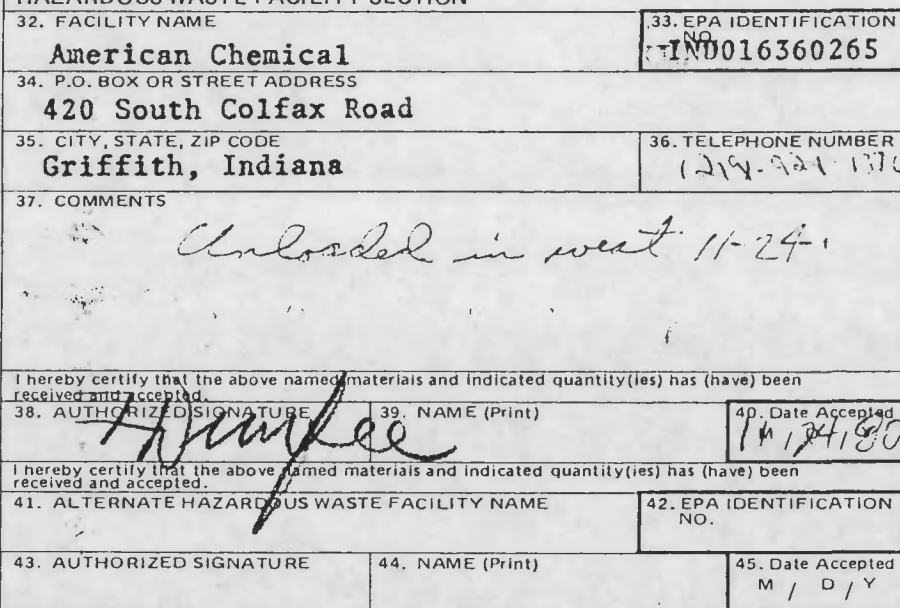 HAZARDOUS WASTE FACILITY SECTION
32. FACILITY NAME
American Chemical
33. EPA IDENTIFICATION NO.
IND016360265
34. P.O. BOX OR STREET ADDRESS
420 South Colfax Road
35. CITY, STATE, ZIP CODE
Griffith, Indiana
36. TELEPHONE NUMBER
37. COMMENTS
Unloaded in west 11-24-
I hereby certify that the above named materials and indicated quantity(ies) has (have) been
received and accepted.
38. AUTHORIZED SIGNATURE
39. NAME (Print)
40. Date Accepted
11,24,80
I hereby certify that the above named materials and indicated quantity(ies) has (have) been
received and accepted.
41. ALTERNATE HAZARDOUS WASTE FACILITY NAME
42. EPA IDENTIFICATION
NO.
43. AUTHORIZED SIGNATURE
44. NAME (Print)
45. Date Accepted
M / D / Y